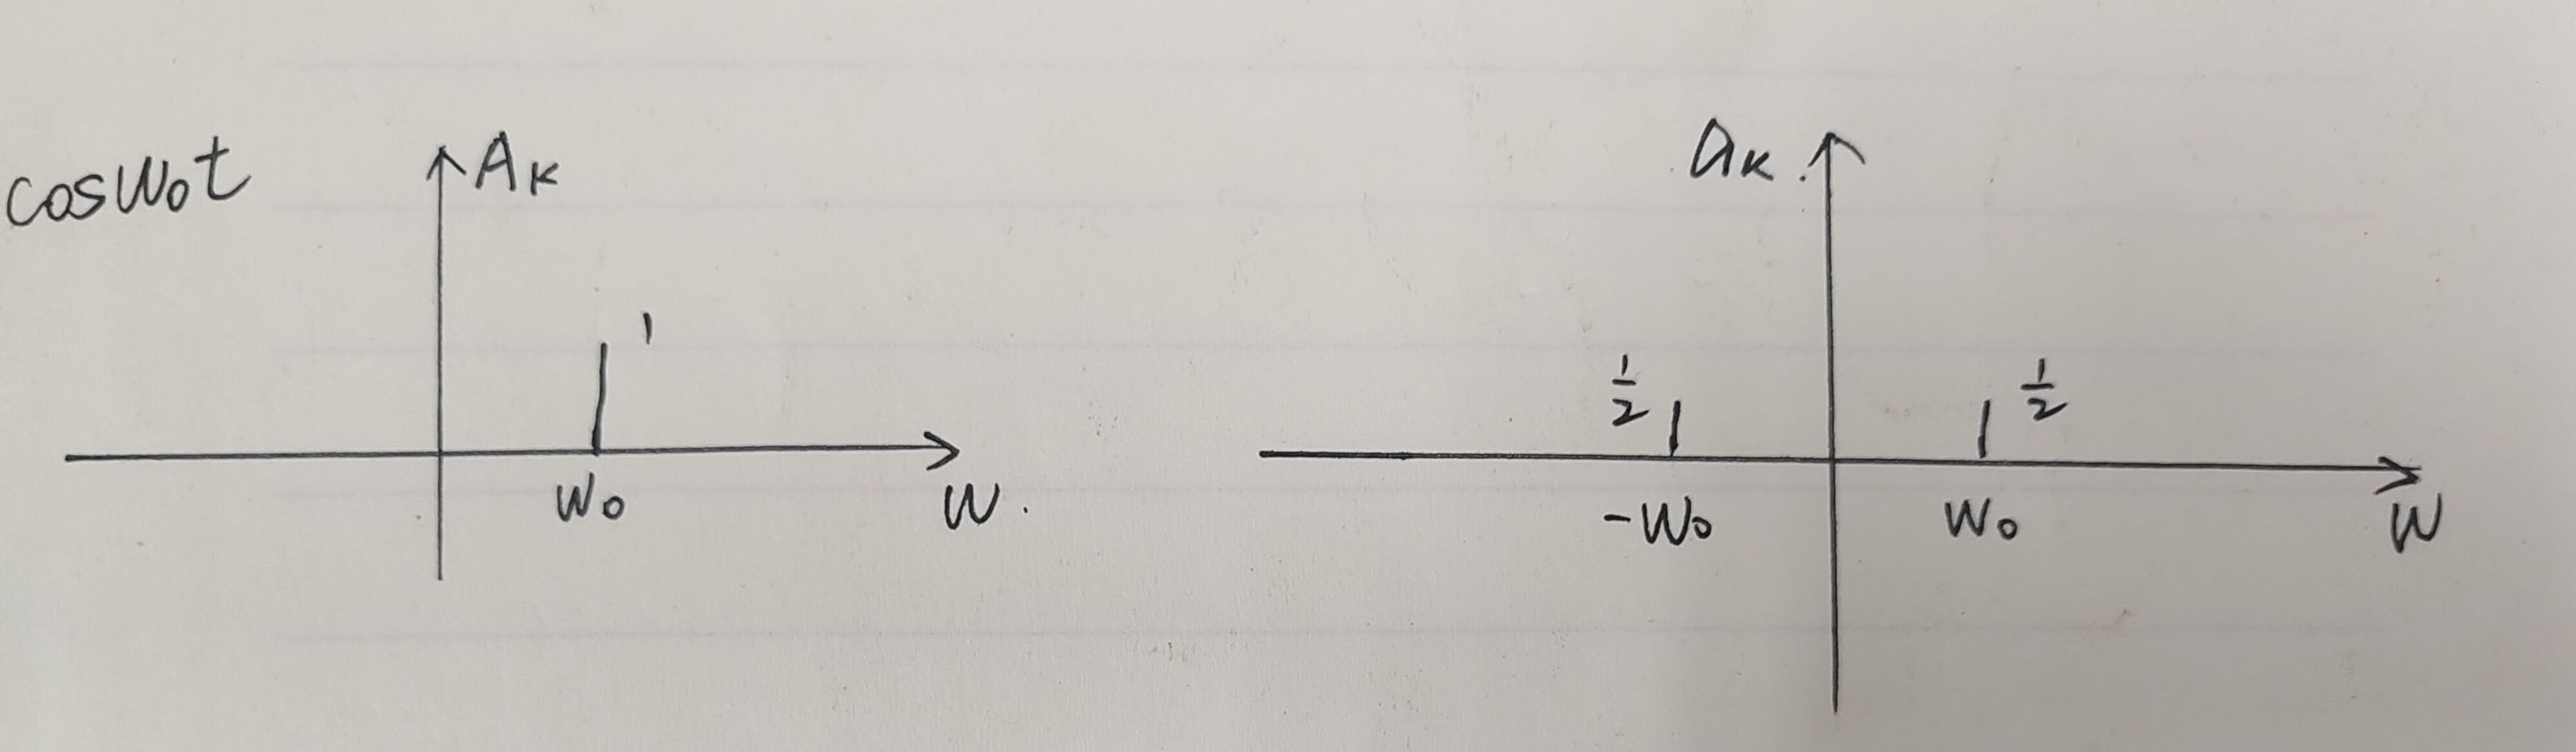 cosW₀t
A_K
1
W₀
W.
a_K.
1/2
1/2
-W₀
W₀
W